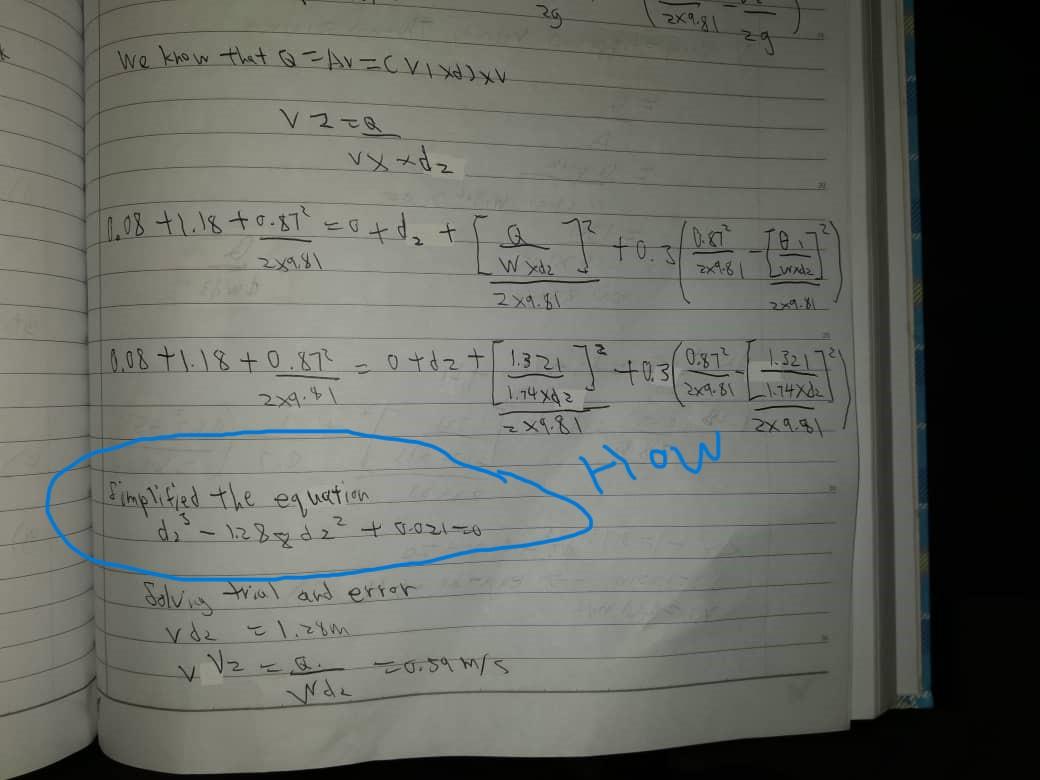 2g (/2×9.81 - /2g)
We know that Q = AV = (V1×d)×V
V2 = Q/VX×d2
0.08 + 1.18 + 0.87²/2×9.81 = 0 + d2 + [Q/W×d2]²/2×9.81 + 0.3(0.87²/2×9.81 - [θ1/W×d2]²/2×9.81)
0.08 + 1.18 + 0.87²/2×9.81 = 0 + d2 + [1.321/1.74×d2]²/2×9.81 + 0.3(0.87²/2×9.81 - [1.321/1.74×d2]²/2×9.81)
HOW
Simplified the equation
d2³ - 1.288 d2² + 0.021 = 0
Solving trial and error
Vd2 = 1.28m
V V2 = Q./Wd2 = 0.59 m/s